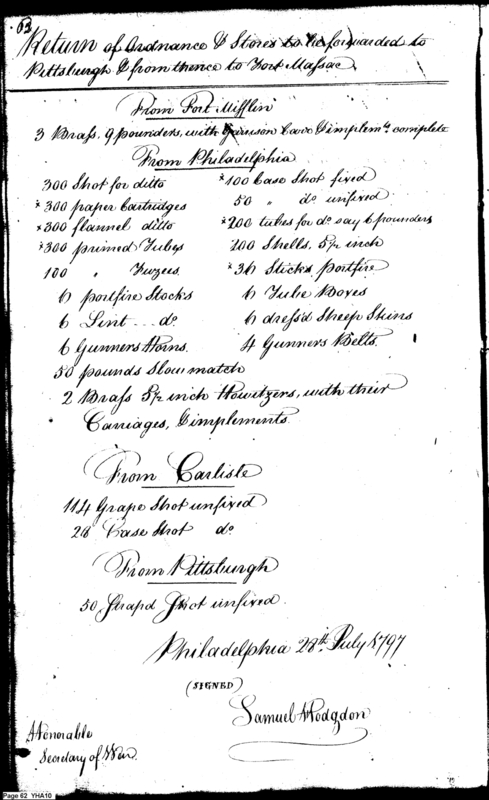 62
Return of Ordnance & Stores to be forwarded to
Pittsburgh & from thence to Fort Massac
From Fort Mifflin
3 Brass, 9 pounders, with Garrison Carr. & implemts. complete
From Philadelphia
300 Shot for ditto
*300 paper Cartridges
*300 flannel ditto
*300 primed Tubes
100 " Fuzees
6 portfire Stocks
6 Lint - - do.
6 Gunners Horns.
50 pounds Slow match
*100 Case Shot fixed
50 " do. unfixed
*200 tubes for do. say 6 pounders
200 Shells, 5 1/2 inch
*36 Sticks portfire
6 Tube Boxes
6 dress'd Sheep Skins
4 Gunners Belts.
2 Brass 5 1/2 inch Howitzers, with their
Carriages, & implements.
From Carlisle
114 Grape Shot unfixed
28 Case Shot do.
From Pittsburgh
50 Strapd Shot unfixed.
Philadelphia 28th. July 1797
(SIGNED)
Samuel Hodgdon
Honorable
Secretary of War.
Page 62 YHA10